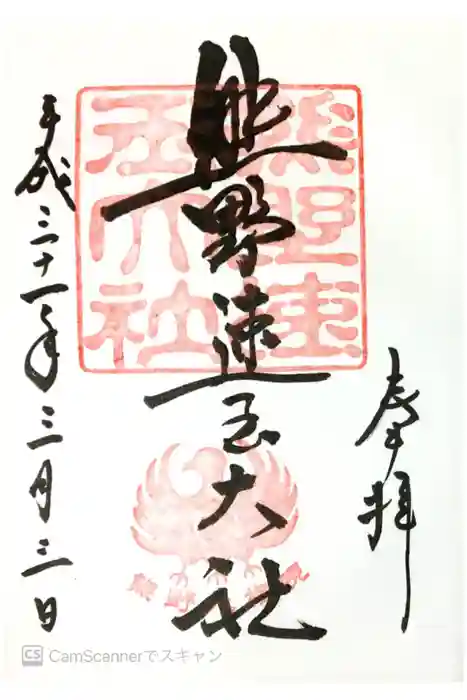 奉拝
熊野速玉大社
熊野速玉大社
平成三十一年三月三日
CS CamScannerでスキャン